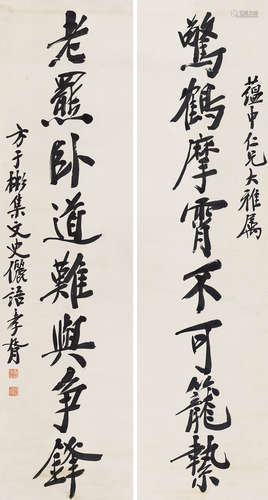 蕴申仁兄大雅属
驚鶴摩霄不可籠縶
老羆卧道難與争鋒
方于彬集文史儷語孝胥